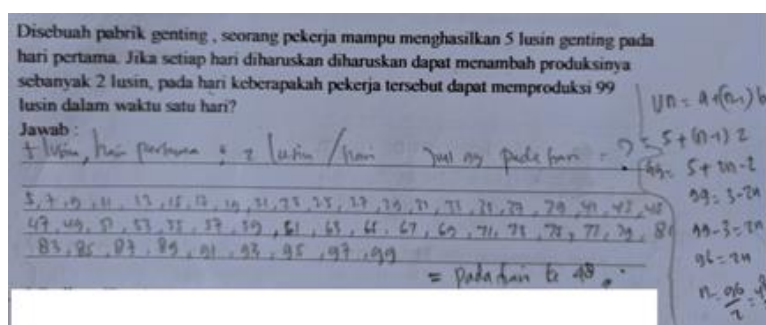 Disebuah pabrik genting , seorang pekerja mampu menghasilkan 5 lusin genting pada
hari pertama. Jika setiap hari diharuskan diharuskan dapat menambah produksinya
sebanyak 2 lusin, pada hari keberapakah pekerja tersebut dapat memproduksi 99
lusin dalam waktu satu hari?
Jawab :
lusin, hari pertama 2 lusin / hari pada hari = ?
5, 7, 9, 11, 13, 15, 17, 19, 21, 23, 25, 27, 29, 31, 33, 35, 37, 39, 41, 43, 45
47, 49, 51, 53, 55, 57, 59, 61, 63, 65, 67, 69, 71, 73, 75, 77, 79, 81
83, 85, 87, 89, 91, 93, 95, 97, 99
= pada hari ke 48
Un = a+(n-1) b
= 5 + (n-1) 2
99 = 5 + 2n-2
99 = 3-2n
99-3 = 2n
96 = 2n
n = 96/2 = 48